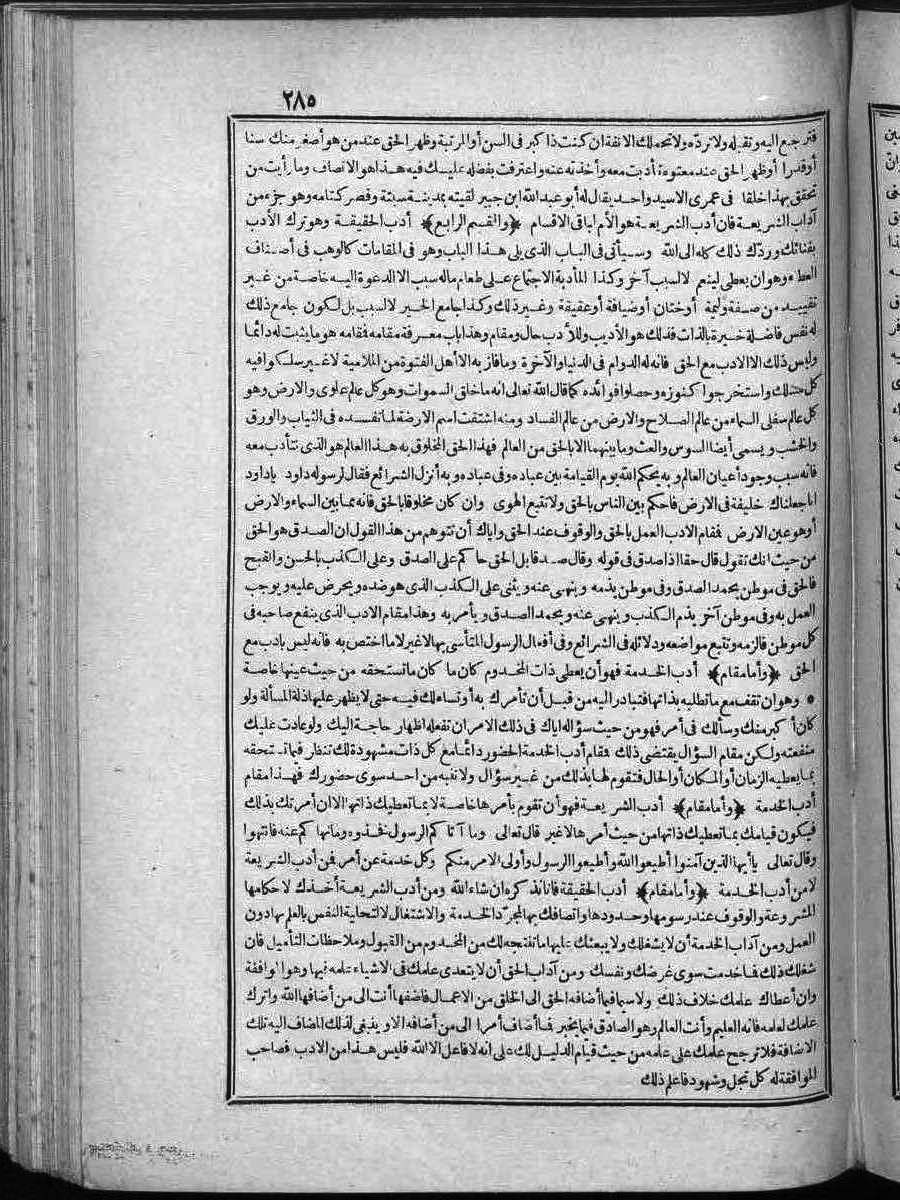 ٢٨٥
فترجع اليه وتقبله ولا ترده ولا تحملك الانفة ان كنت ذا كبر فى السن أو المرتبة وظهر الحق عند من هو أصغر منك سنا
أو قدرا أو ظهر الحق عند معتوه تأدبت معه وأخذته عنه واعترفت بفضله عليك فيه هذا هو الانصاف وما رأيت من
تحقق بهذا خلقا فى عمرى الا سيد واحد يقال له أبو عبد الله ابن جبير لقيته بمدينة سبتة وقصر كتامه وهو جزء من
آداب الشريعة فان أدب الشريعة هو الأم لباقى الاقسام ﴿والقسم الرابع﴾ أدب الحقيقة وهو ترك الأدب
بفنائك وردّك ذلك كله الى الله وسيأتى فى الباب الذى يلى هذا الباب وهو فى المقامات كالوهب فى أصناف
العطاء وهو ان يعطى لينعم لا لسبب آخر وكذا المأدبة الاجتماع على طعام ماله سبب الا الدعوة اليه خاصة من غير
تقييد من صفة وليمة أو ختان أو ضيافة أو عقيقة وغير ذلك وكذا جامع الخير لا لسبب بل لكون جامع ذلك
له نفس فاضلة خيرة بالذات فذلك هو الأديب وللأدب حال ومقام وهذا باب معرفة مقامه فمقامه هو ما يثبت له دائما
وليس ذلك الا الادب مع الحق فانه له الدوام فى الدنيا والآخرة وما فاز به الا أهل الفتوة من الملامية لا غير سلكوا فيه
كل مسلك واستخرجوا كنوزه وحصلوا فوائده كما قال الله تعالى انه ما خلق السموات وهو كل عالم علوى والارض وهو
كل عالم سفلى السماء من عالم الصلاح والارض من عالم الفساد ومنه اشتقت اسم الارضة لما تفسده فى الثياب والورق
والخشب ويسمى أيضا السوس والعث وما بينهما الا بالحق من العالم فهذا الحق المخلوق به هذا العالم هو الذى تتأدب معه
فانه سبب وجود أعيان العالم وبه يحكم الله يوم القيامة بين عباده وفى عباده وبه أنزل الشرائع فقال لرسوله داود ياداود
انا جعلناك خليفة فى الارض فاحكم بين الناس بالحق ولا تتبع الهوى وان كان مخلوقا بالحق فانه مما بين السماء والارض
أو هو عين الارض فمقام الادب العمل بالحق والوقوف عند الحق واياك أن تتوهم من هذا القول ان الصدق هو الحق
من حيث انك تقول قال حقا اذا صدق فى قوله وقال صدقا بل الحق حاكم على الصدق وعلى الكذب بالحسن والقبح
فالحق فى موطن يحمد الصدق وفى موطن يذمه وينهى عنه ويثنى على الكذب الذى هو ضده ويحرض عليه ويوجب
العمل به وفى موطن آخر يذم الكذب وينهى عنه ويحمد الصدق ويأمر به وهذا مقام الادب الذى ينفع صاحبه فى
كل موطن فالزمه وتتبع مواضعه ودلائله فى الشرائع وفى أفعال الرسول المتأسى بها لا غير لا ما اختص به فانه ليس بادب مع
الحق ﴿وأما مقام﴾ أدب الخدمة فهو أن يعطى ذات المخدوم كان ما كان ما تستحقه من حيث عينها خاصة
* وهو ان تقف مع ما تطلبه بذاتها فتبادر اليه من قبل أن تأمرك به أو تساءلك فيه حتى لا يظهر عليها ذلة المسألة ولو
كان أكبر منك وسألك فى أمر فهو من حيث سؤاله اياك فى ذلك الامر ان تفعله اظهار حاجة اليك ولو عادت عليك
منفعته ولكن مقام السؤال يقتضى ذلك فمقام أدب الخدمة الحضور دائما مع كل ذات مشهودة لك تنظر فيما تستحقه
بما يعطيه الزمان أو المكان أو الحال فتقوم لها بذلك من غير سؤال ولا تنبه من احد سوى حضورك فهذا مقام
أدب الخدمة ﴿وأما مقام﴾ أدب الشريعة فهو أن تقوم بأمرها خاصة لا بما تعطيك ذاتها الا ان أمرتك بذلك
فيكون قيامك بما تعطيك ذاتها من حيث أمرها لا غير قال تعالى وما آتاكم الرسول فخذوه وما نهاكم عنه فانتهوا
وقال تعالى ياأيها الذين آمنوا أطيعوا الله وأطيعوا الرسول وأولى الامر منكم وكل خدمة عن أمر فمن أدب الشريعة
لا من أدب الخدمة ﴿وأما مقام﴾ أدب الحقيقة فانا نذكره ان شاء الله ومن أدب الشريعة أخذك لاحكامها
المشروعة والوقوف عند رسومها وحدودها واتصافك بها لمجرّد الخدمة والاشتغال لا لتحلية النفس بالعلم بها دون
العمل ومن آداب الخدمة أن لا يشغلك ولا يبعثك عليها ما تنتجه لك من المخدوم من القبول وملاحظات التأميل فان
شغلك ذلك فما خدمت سوى غرضك ونفسك ومن آداب الحق أن لا يتعدى علمك فى الاشياء علمه فيها وهو الموافقة
وان أعطاك علمك خلاف ذلك ولا سيما فيما أضافه الحق الى الخلق من الاعمال فاضفها أنت الى من أضافها الله واترك
علمك لعلمه فانه العليم وأنت العالم وهو الصادق فيما يخبر فما أضاف أمرا الى من أضافه الا وينبغى لذلك المضاف اليه تلك
الاضافة فلا ترجح علمك على علمه من حيث قيام الدليل لك على انه لا فاعل الا الله فليس هذا من الادب فصاحب
الموافقة له كل تجل وشهود فاعلم ذلك